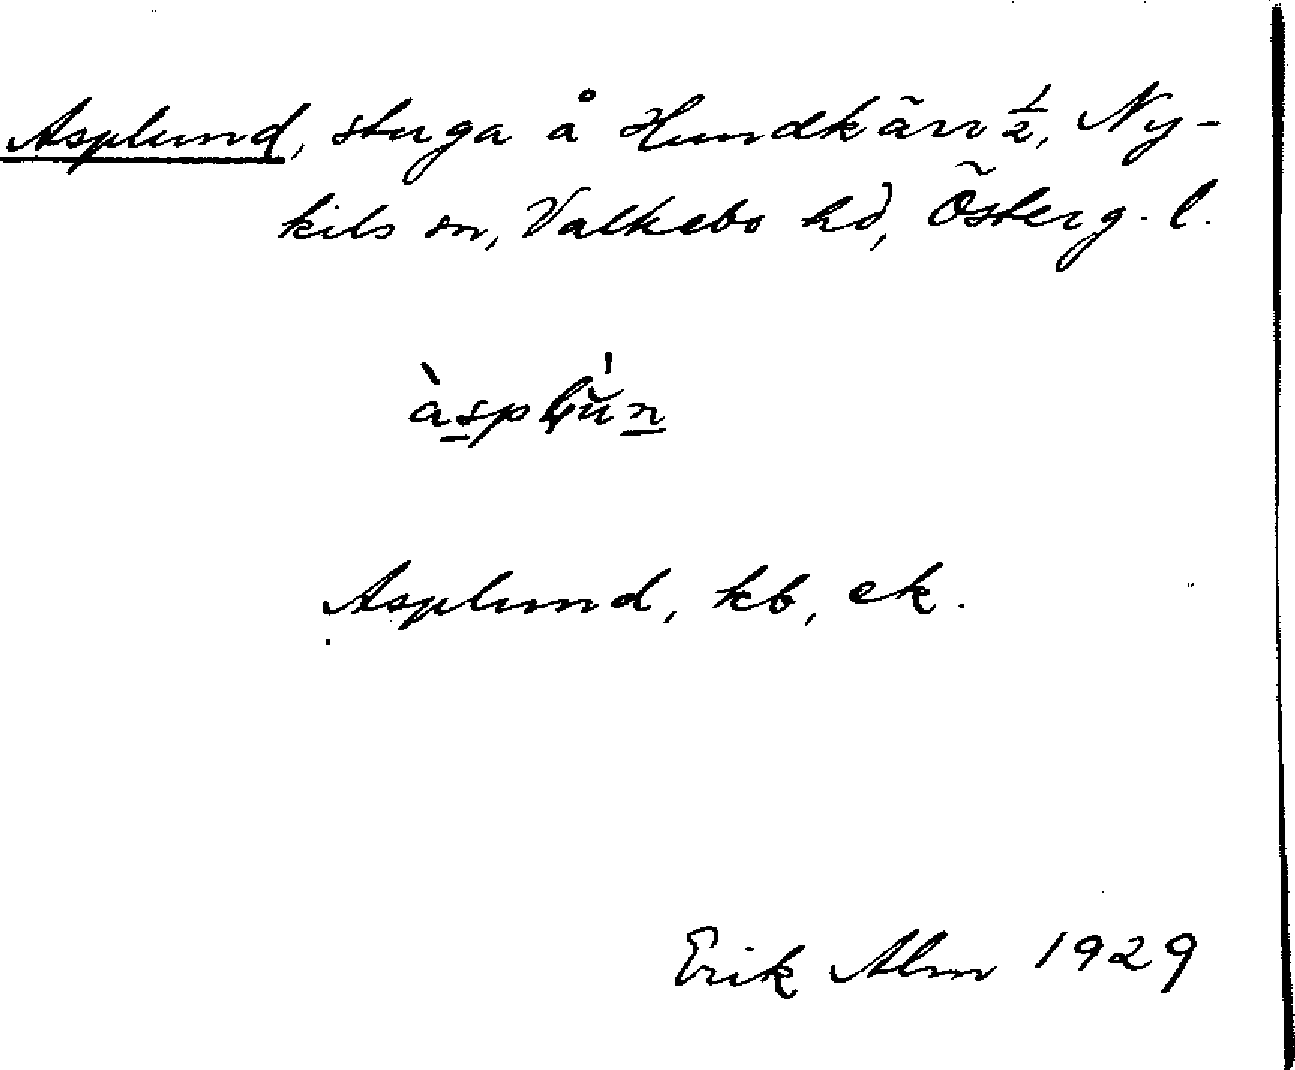 Asplund, stuga å Hundkärr ½, Ny-
kils sn, Valkebo hd, Österg. l.
Asplund, kb, ek.
Erik Alm 1929